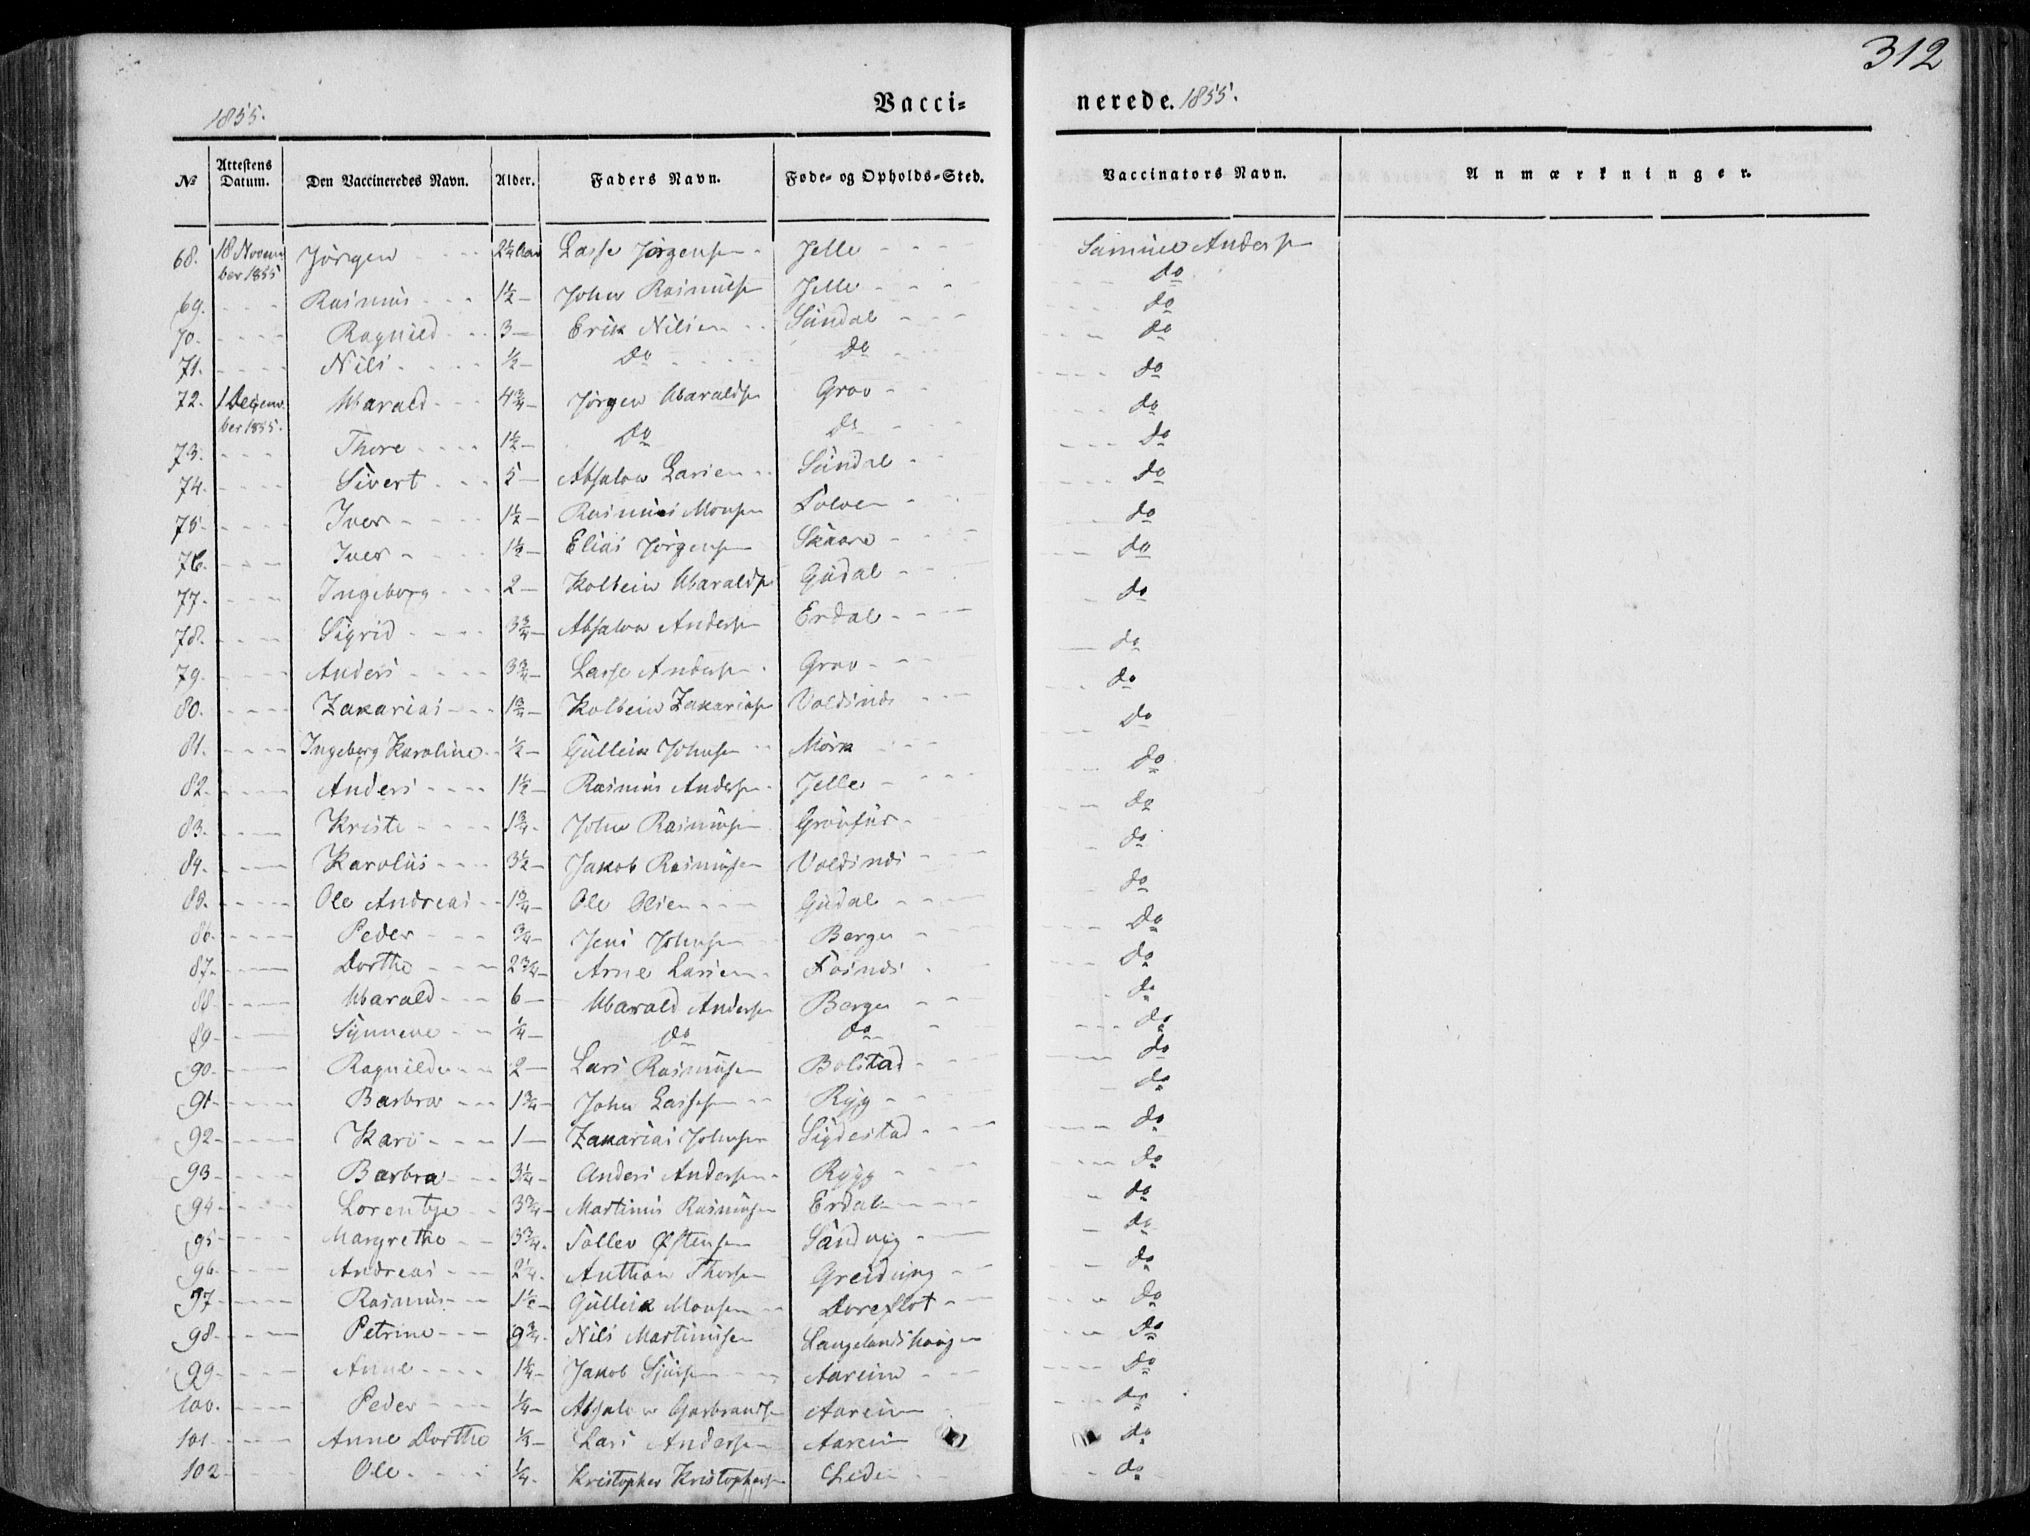 312
1855.
Vacci=
nerede. 1855.
No | Attestens Datum. | Den Vaccineredes Navn. | Alder. | Faders Navn. | Føde- og Opholds-Sted. | Vaccinators Navn. | Anmærkninger.
68. 18 Novem ber 1855 Jørgen 2 1/4 Aar Lasse Jørgensen Jelle Samuel Andersen
do
69. Rasmus 1 1/2 John Rasmussen Jelle do
70. Ragnild 3 Erik Nilsen Sundal do
71. Nils 1/2 do do do
72. 1 Decem ber 1855. Harald 4 3/4 Jørgen Haraldsen Grov do
73. Thore 1 1/2 do do do
74. Sivert 5 Absalon Larsen Sundal do
75. Iver 1 1/2 Rasmus Monsen do
76. Iver 1 1/2 Elias Jørgensen Skaare do
77. Ingeborg 2 Kolbein Haraldsen Gudal do
78. Sigrid 3 3/4 Absalon Andersen Erdal do
79. Anders 3 3/4 Lasse Andersen Grov do
80. Zakarias 1 3/4 Kolbein Zakariasen Voldsnæs do
81. Ingeborg Karoline 1/2 Gulleik Johnsen Mørk do
82. Anders 1 1/2 Rasmus Andersen Jelle do
83. Kristi 1 3/4 John Rasmussen Grovfur do
84. Karolus 3 1/2 Jakob Rasmussen Voldsnæs do
85. Ole Andreas 1 3/4 Ole Olsen Gudal do
86. Peder 3/4 Jens Johnsen Berge do
87. Dorthe 2 3/4 Arne Larsen do
88. Harald 6 Harald Andersen Berge do
89. Synneve 1/4 do do do
90. Ragnilde 2 Lars Rasmussen Bolstad do
91. Barbra 1 3/4 John Lassesen Rygg do
92. Kari 1 Zakarias Johnsen Sigdestad do
93 Barbra 3 1/4 Anders Andersen Rygg do
94. Lorentse 3 3/4 Martinus Rasmusen Erdal do
95 Margrethe 3 3/4 Tollev Østensen Sandvig do
96. Andreas 2 1/4 Anthon Thorsen Greidung do
97 Rasmus 1 1/2 Gulleik Monsen Doreflot do
98. Petrine 9 3/4 Nils Martinusen Langelandshaugen do
99. Anne 1 1/4 Jakob Sjursen Aareim do
100. Peder 1/4 Absalon Garbrandsen Aareim do
101 Anne Dorthe 1/4 Lars Andersen Aareim do
102 Ole 1/4 Kristopher Kristophersen do